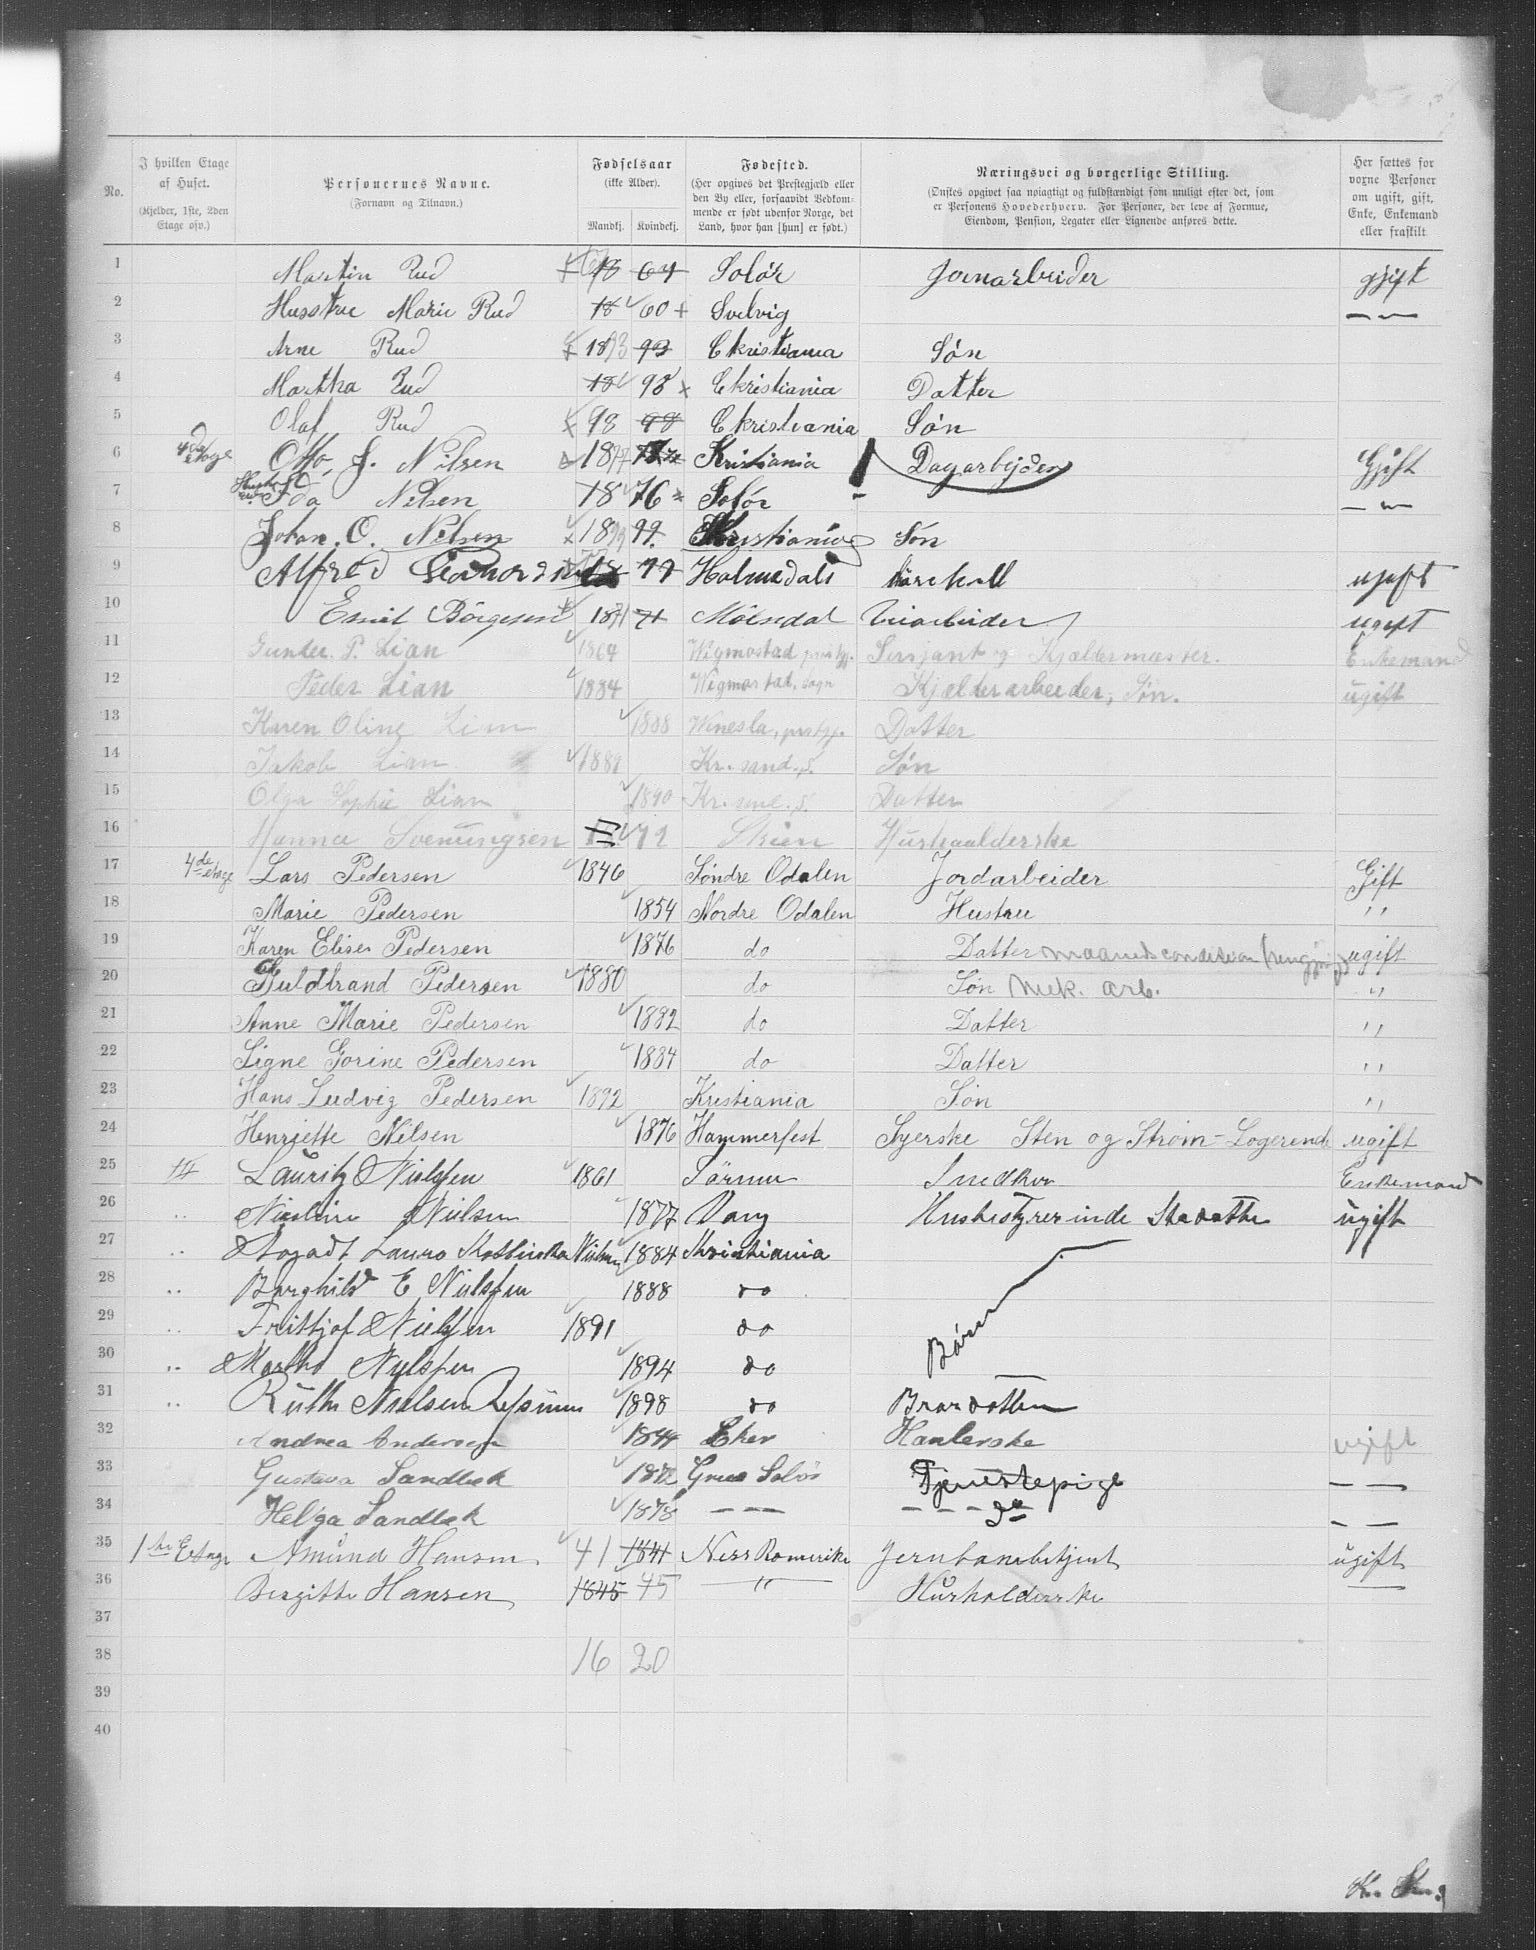 No.
I hvilken Etage af Huset. (Kjelder, 1ste, 2den Etage osv.)
Personernes Navne. (Fornavn og Tilnavn.)
Fødselsaar (ikke Alder). Mandkj. Kvindekj.
Fødested. (Her opgives det Prestegjæld eller den By eller, forsaavidt Vedkommende er født udenfor Norge, det Land, hvor han [hun] er født.)
Næringsvei og borgerlige Stilling. (Ønskes opgivet saa nøiagtigt og fuldstændigt som muligt efter det, som er Personens Hovederhverv. For Personer, der leve af Formue, Eiendom, Pension, Legater eller Lignende anføres dette.)
Her sættes for voxne Personer om ugift, gift, Enke, Enkemand eller fraskilt
1 Martin Rud 18 64 Solör Jornarbeider gjift
2 Husstrue Marie Rud 18 60 + Svelvig — „ —
3 Arne Rud 1893 93 Christiania Sön
4 Martha Rud 18 98 x Christiania Datter
5 Olaf Rud 98 98 Christiania Sön
6 4de etage Otto J. Nilsen 1877 Kristiania Dagarbejder Gjift
7 Ida Nilsen 18 76 Solör — „ —
8 Johan. O. Nilsen 1899 99. Kristiania Sön
9 Alfred 77 Holmedals ugift
10 Emil Börgesen 1871 71 Mölndal ugift
11 Gunder. P. Lian 1864 Wigmostad Serjant og Kjældermester. Enkemand
12 Peder Lian 1884 Wigmostad, sogn Kjælderarbeider, Sön. ugift
13 Karen Oline Lian 1888 Wenesla, Datter
14 Jakob Lian 1881 Kr. sand. S. Sön
15 Olga Sophie Lian 1890 Kr. sand. S. Datter
16 Hanna Svenungsen 72 Skien Hushaalderske
17 4de etage Lars Pedersen 1846 Söndre Odalen Jordarbeider Gift
18 Marie Pedersen 1854 Nordre Odalen Hustru „
19 Karen Elise Pedersen 1876 do Datter ugift
20 Guldbrand Pedersen 1880 do Sön mek. arb. „
21 Anne Marie Pedersen 1882 do Datter „
22 Signe Gorine Pedersen 1884 do Datter „
23 Hans Ludvig Pedersen 1892 Kristiania Sön „
24 Henriette Nilsen 1876 Hammerfest Syerske Sten og Ström - Logerende ugift
25 Lauritz Nielsen 1861 Snedker Enkemand
26 „ Nielsen 1877 Vang Husbestyrerinde ugift
27 „ Laura Nielsen 1884 Kristiania
28 „ Borghild E Nielsen 1888 do
29 „ Fritjof Nielsen 1891 do Börn
30 „ Martha Nielsen 1894 do
31 „ Ruth Nielsen 1898 do Brordatter
32 Andrea Andersen 1844 Eker Hanlerske ugift
33 Gustava Sandbek Grue Solör Tjenestepige — —
34 Helga Sandbek 1878 — — — — — do — —
35 1ste Etage Amund Hansen 41 1841 Ness Romerike Jernbanebetjent ugift
36 Birgitte Hansen 1845 45 — „ — Husholderske —
37
38 16 20
39
40